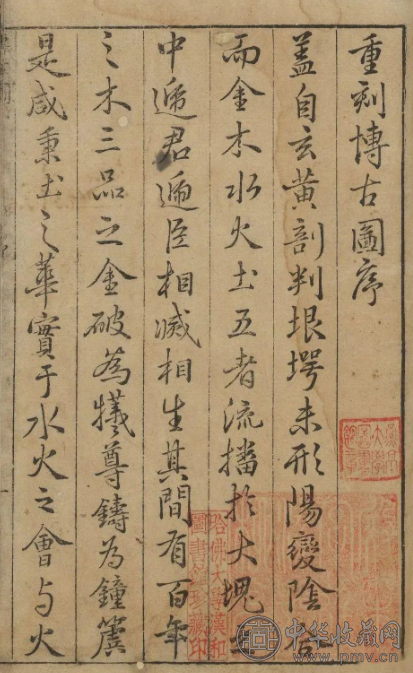 重刻博古圖序
蓋自玄黃剖判垠堮未形陽變陰合
而金木水火土五者流播於大塊之
中遞君遞臣相滅相生其間有百年
之木三品之金破為犧尊鑄為鐘簴
是咸秉土之華實于水火之會与火
哈佛大學漢和
圖書館珍藏印
中华收藏网
www.ipmv.cn